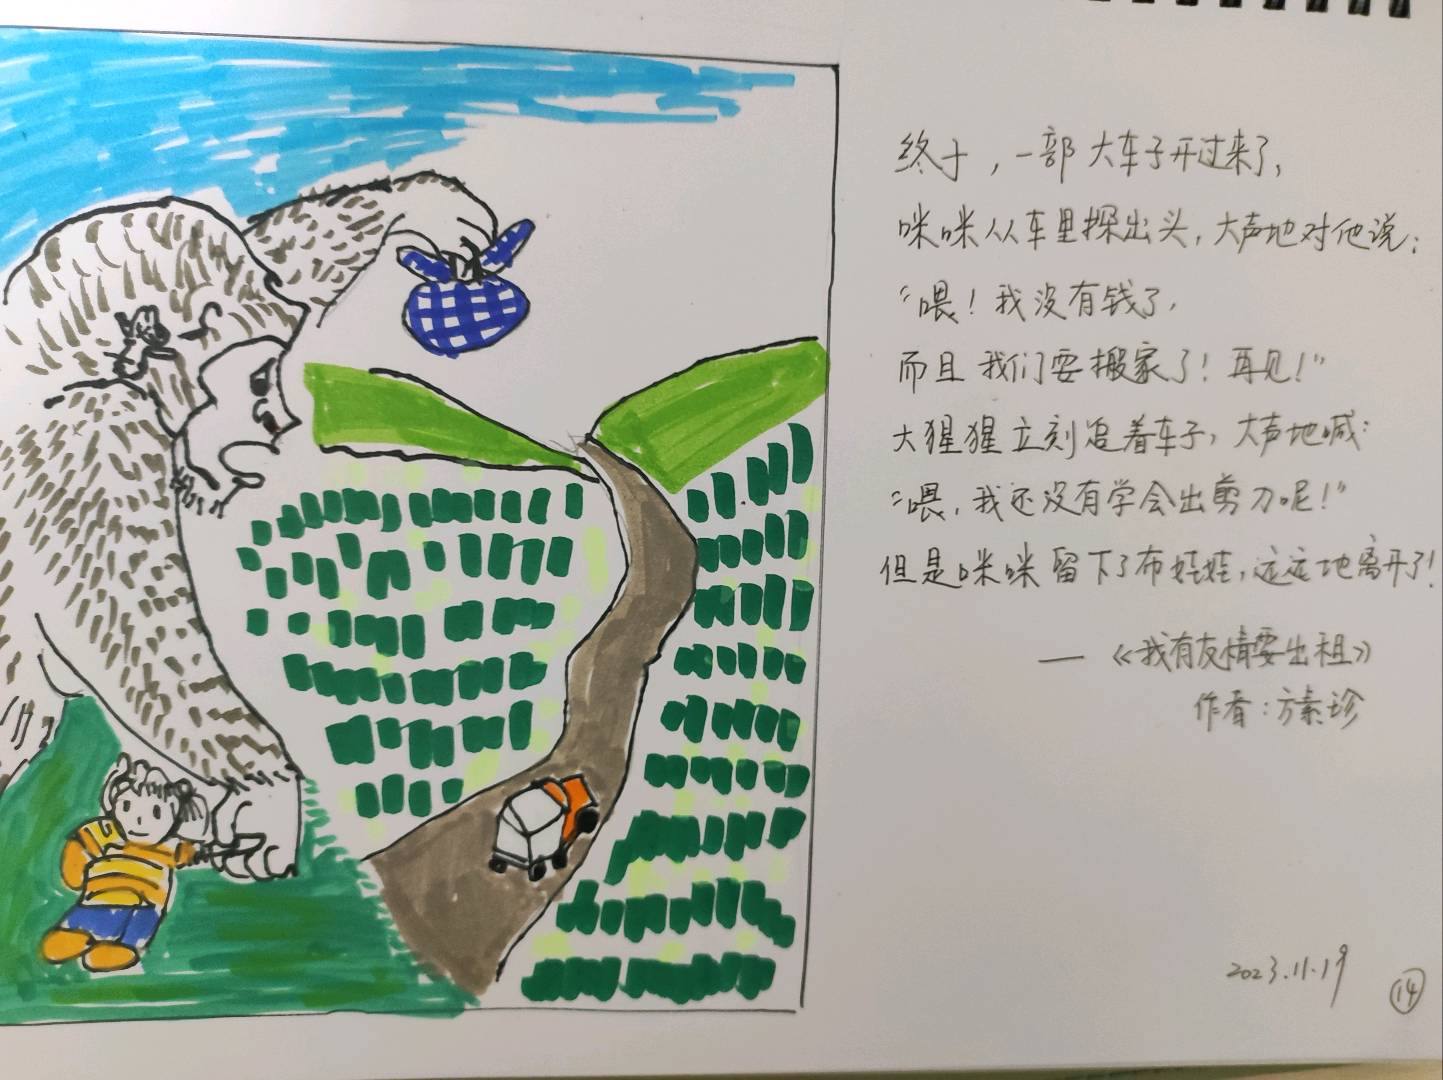 终于，一部大车子开过来了，
咪咪从车里探出头，大声地对他说：
“喂！我没有钱了，
而且我们要搬家了！再见！”
大猩猩立刻追着车子，大声地喊：
“喂，我还没有学会出剪刀呢！”
但是咪咪留下了布娃娃，远远地离开了！
—《我有友情要出租》
作者：方素珍
2023.11.19
14